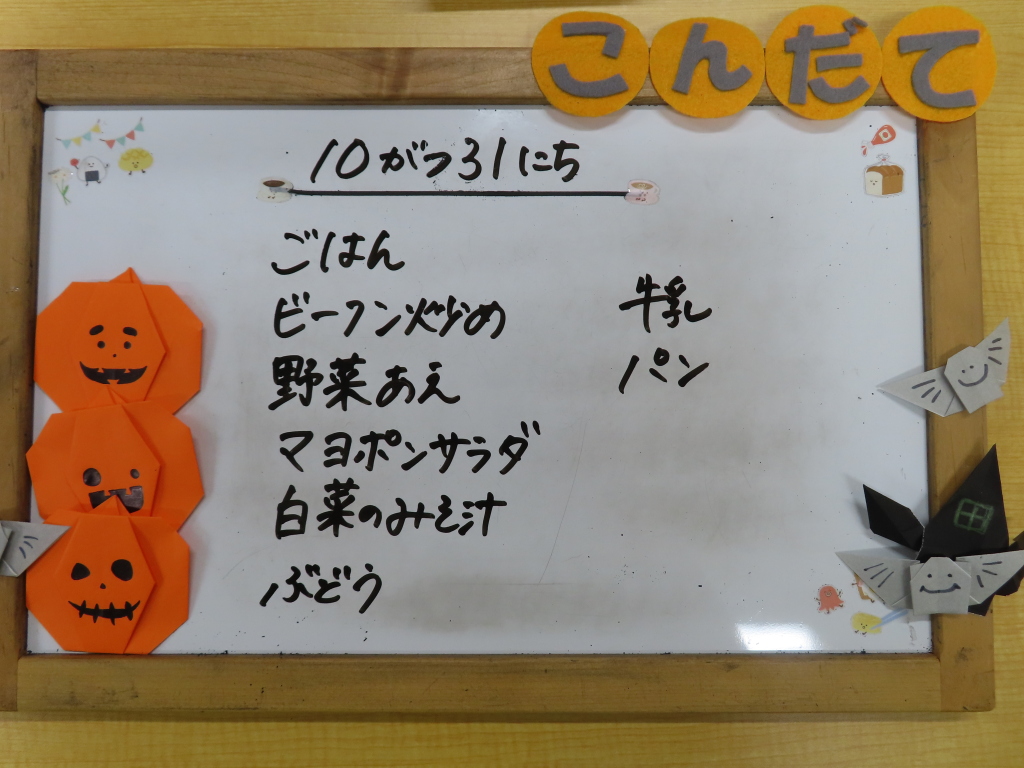 こんだて
10がつ31にち
ごはん
ビーフン炒め
野菜あえ
マヨポンサラダ
白菜のみそ汁
ぶどう
牛乳
パン